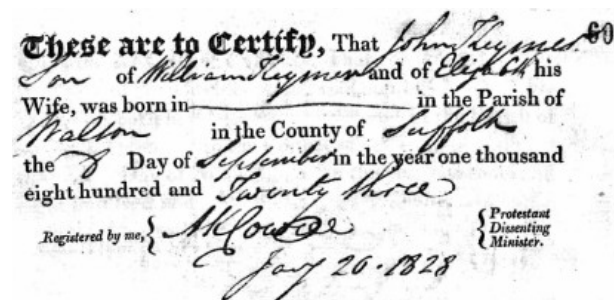 60
These are to Certify, That John Keymer
Son of William Keymer and of Elizabth his
Wife, was born in in the Parish of
Walton in the County of Suffolk
the 8 Day of September in the year one thousand
eight hundred and Twenty three
Registered by me, { { Protestant
Dissenting
Minister.
Jany 26 · 1828